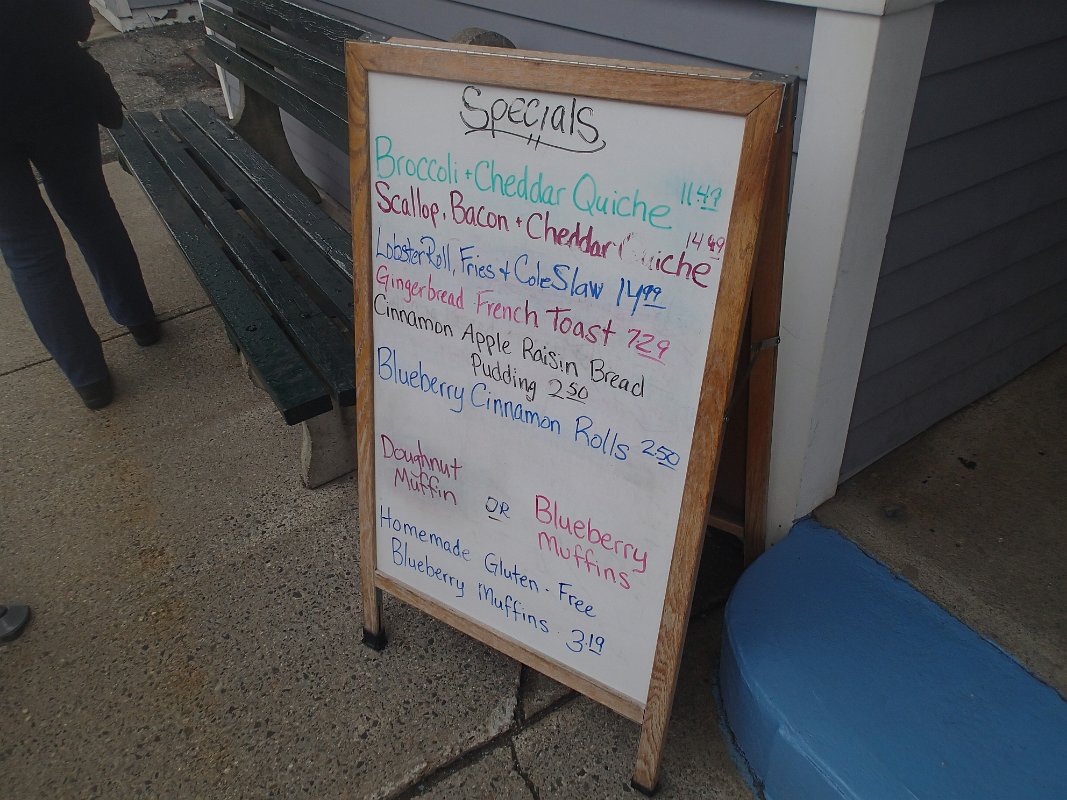 Specials
Broccoli + Cheddar Quiche 11.49
Scallop, Bacon + Cheddar Quiche 14.49
Lobster Roll, Fries + Cole Slaw 14.99
Gingerbread French Toast 7.29
Cinnamon Apple Raisin Bread
Pudding 2.50
Blueberry Cinnamon Rolls 2.50
Doughnut
Muffin OR Blueberry
Muffins
Homemade Gluten-Free
Blueberry Muffins. 3.19